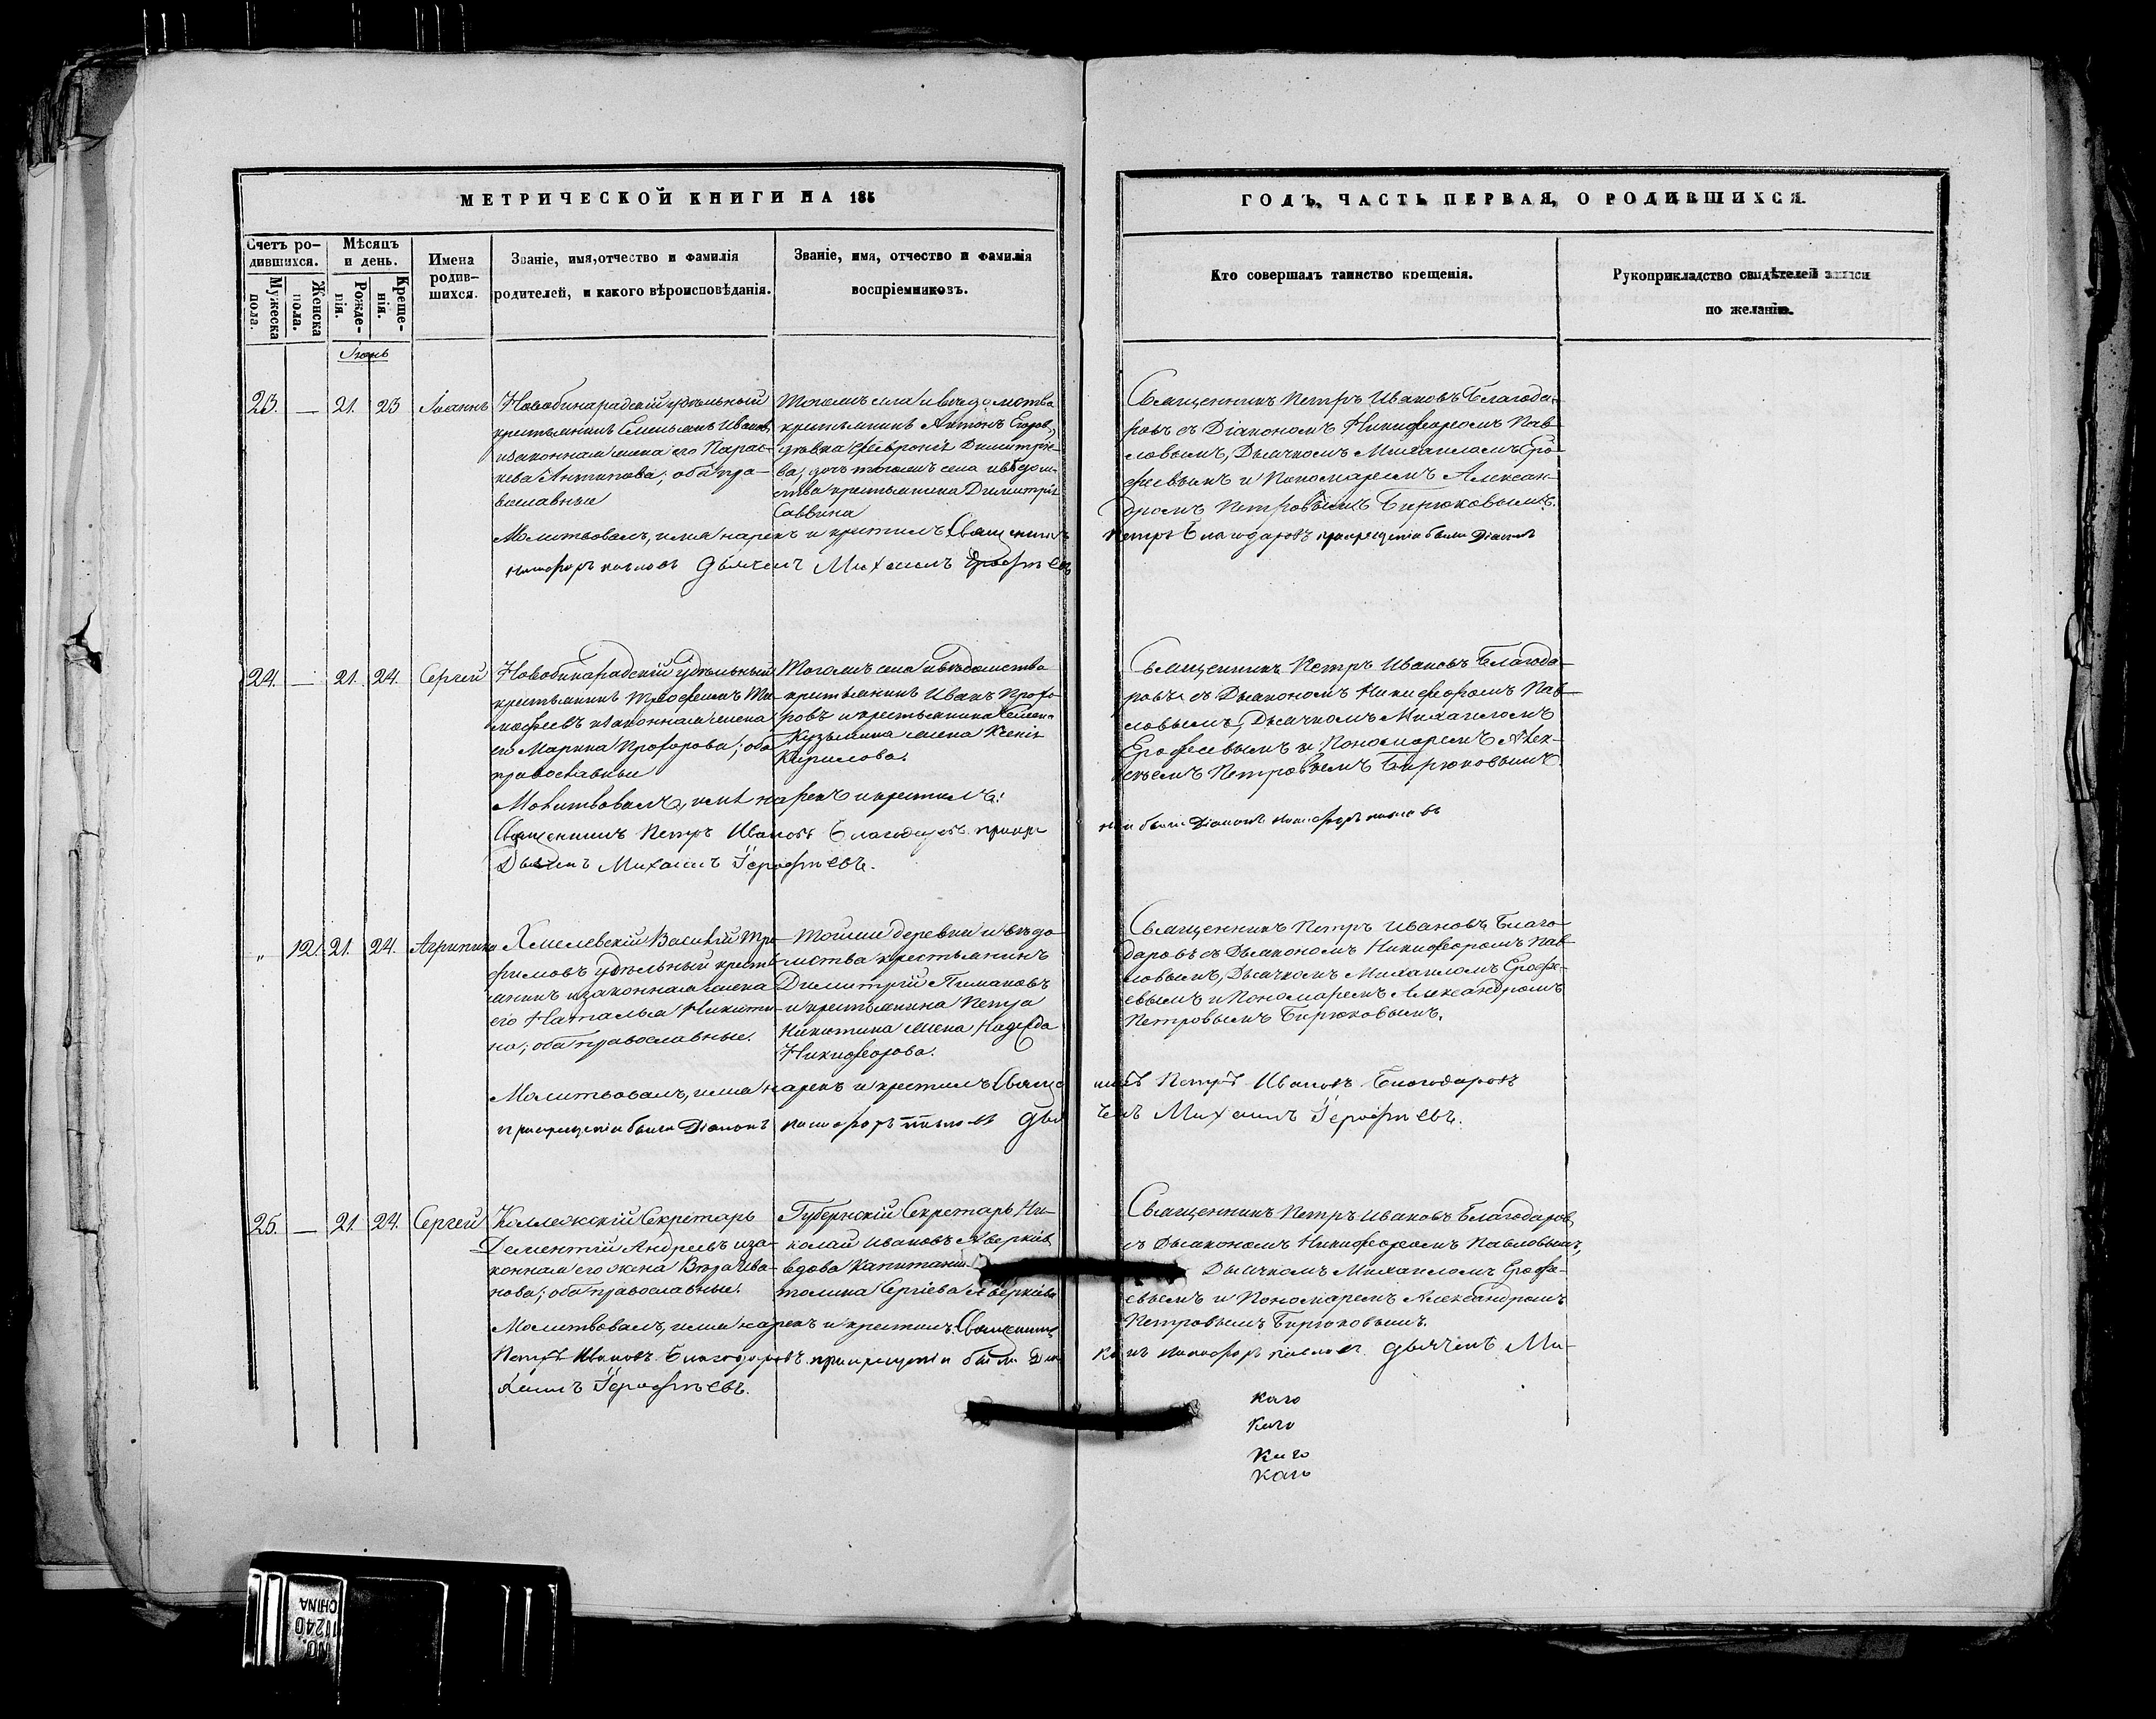 МЕТРИЧЕСКОЙ КНИГИ НА 185
Счетъ ро-
дившихся.
Мѣсяцъ
и день.
Мужеска
пола.
Женска
пола.
Рожде-
нія.
Креще-
нія.
Имена
родив-
шихся.
Званіе, имя, отчество и фамилія
родителей, и какого вѣроисповѣданія.
Званіе, имя, отчество и фамилія
воспріемниковъ.
ГОДЪ, ЧАСТЬ ПЕРВАЯ, О РОДИВШИХСЯ.
Кто совершалъ таинство крещенія.
Рукоприкладство свидѣтелей записи
по желанію.
Іюнь
23. — 21. 23 Іоаннъ
Новобинарадскій удѣльный
крестьянинъ Емельянъ Ивановъ,
и законная жена его Парас-
кева Антипова; оба пра-
вославные
Тогожъ села и вѣдомства
крестьянинъ Антонъ Егоровъ,
дѣвка Феѵронія Димитріе-
ва, дочь тогожъ села и вѣдом-
ства крестьянина Димитрія
Саввина
Священникъ Петръ Ивановъ Благода-
ровъ съ Діакономъ Никифоромъ Пав-
ловымъ, Дьячкомъ Михаиломъ Еро-
феевымъ и Пономаремъ Алексан-
дромъ Петровымъ Бирюковымъ.
Молитвовалъ, имя нарекъ и крестилъ Священникъ
Петръ Благодаровъ при крещеніи были Діаконъ
Никифоръ Павловъ Дьячекъ Михаилъ Ерофѣевъ
24. — 21. 24. Сергей
Новобинарадскій удѣльный
крестьянинъ Трофимъ Ти-
мофеевъ и законная жена
его Марина Прохорова; оба
православные
Тогожъ села и вѣдомства
крестьянинъ Иванъ Прохо-
ровъ и крестьянина Семена
Кузьмина жена Ксенія
Кирилова.
Священникъ Петръ Ивановъ Благода-
ровъ съ Дьякономъ Никифоромъ Пав-
ловымъ, Дьячкомъ Михаиломъ
Ерофеевымъ и Пономаремъ
Петровымъ Бирюковымъ
Молитвовалъ, имя нарекъ и крестилъ:
Священникъ Петръ Ивановъ Благодаровъ. при кре
ніи были Діаконъ Никифоръ Павловъ
Дьячекъ Михаилъ Іерофѣевъ.
„ 12. 21. 24. Агрипина
Хмелевскій Василій Тро-
фимовъ удѣльный кресть-
янинъ и законная жена
его Наталья Никити-
на; оба православные.
Тойже деревни и вѣдо-
мства крестьянинъ
Димитрій Пимановъ
и крестьянина Петра
Никитина жена Надежда
Никифорова.
Священникъ Петръ Ивановъ Благо-
даровъ съ Дьякономъ Никифоромъ Пав-
ловымъ, Дьячкомъ Михаиломъ Ерофе-
евымъ и Пономаремъ Александромъ
Петровымъ Бирюковымъ.
Молитвовалъ, имя нарекъ и крестилъ Свяще
никъ Петръ Ивановъ Благодаровъ
при крещеніи были Діаконъ Никифоръ Павловъ Дья
чекъ Михаилъ Іерофѣевъ.
25. — 21. 24. Сергей
Коллежскій Секретарь
Дементій Андреевъ и за-
конная его жена Вѣра Ива-
нова; оба православные.
Губернскій Секретарь Ни-
колай Ивановъ Аверкіев
вдова Капитанш
толина Сергіева Аверкіева
Священникъ Петръ Ивановъ Благодаровъ,
съ Дьякономъ Никифоромъ Павловымъ,
Дьячкомъ Михаиломъ Ерофе-
евымъ и Пономаремъ Александромъ
Петровымъ Бирюковымъ.
Молитвовалъ, имя нарекъ и крестилъ. Священникъ
Петръ Ивановъ Благодаровъ. при крещеніи были Діа
конъ Никифоръ Павловъ. Дьячекъ Ми-
хаилъ Іерофѣевъ.
каго
каго
каго
каго
NO.
11240
CHINA